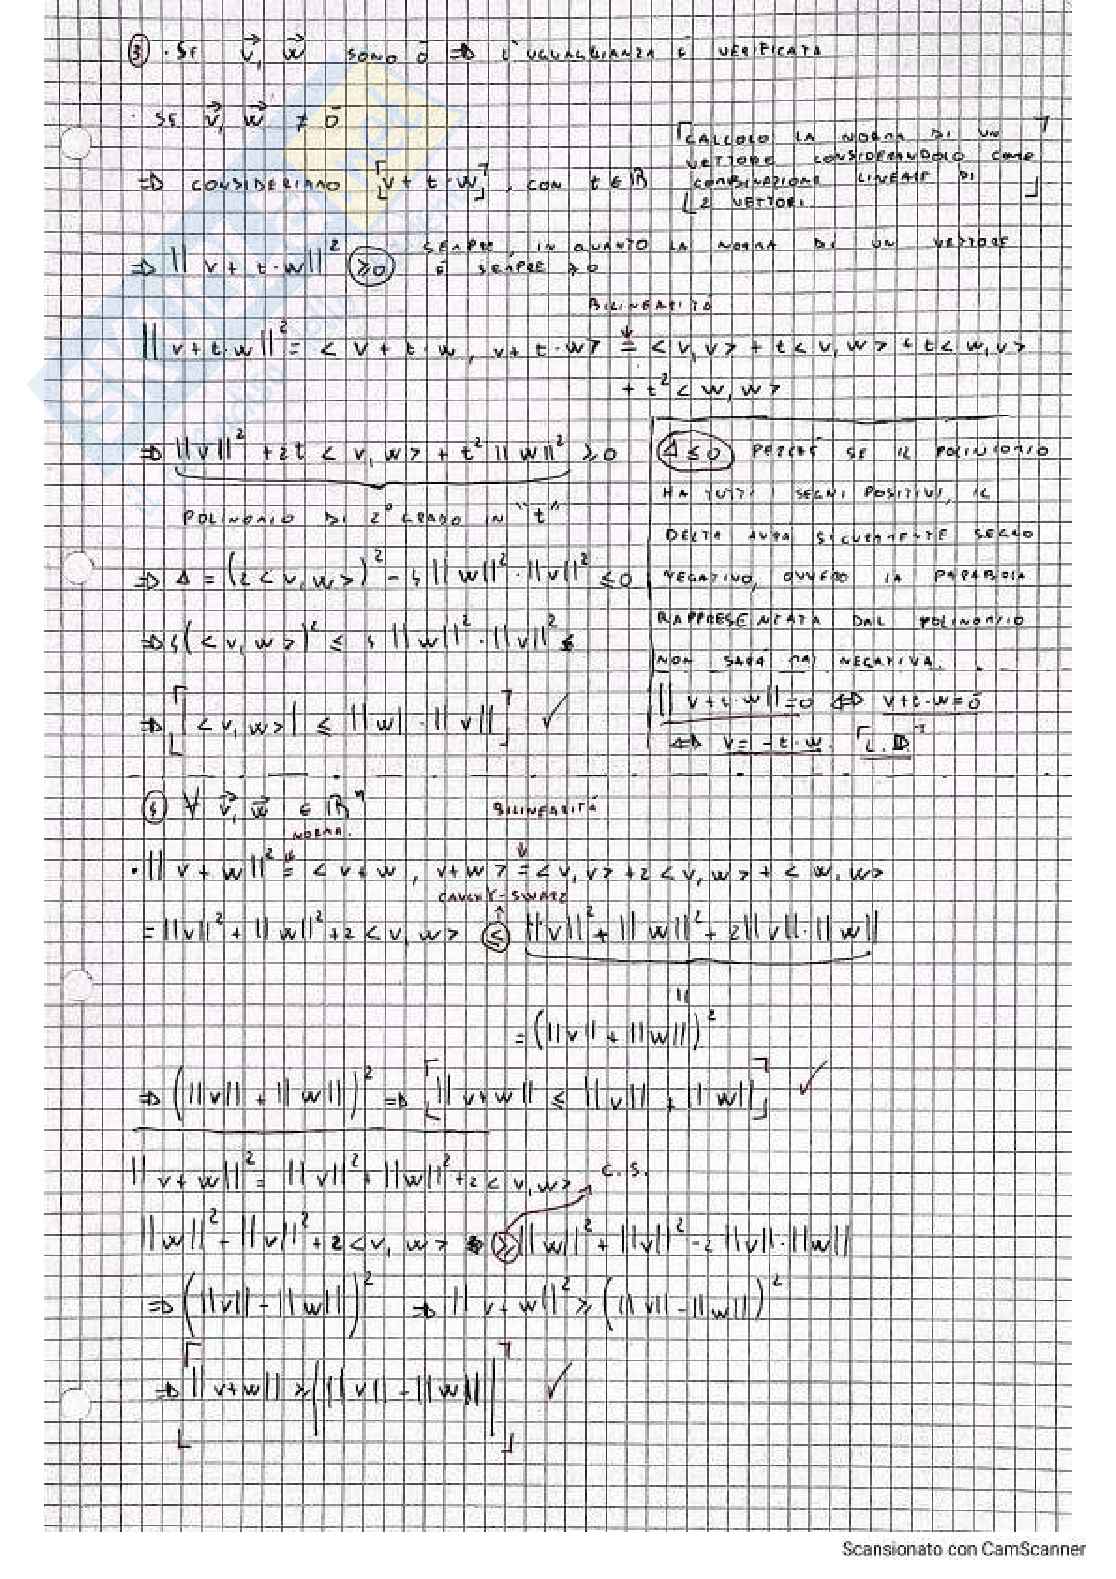 ③ · SE v⃗, w⃗ SONO 0̄ ⇒ L'UGUAGLIANZA È VERIFICATA
· SE v⃗, w⃗ ≠ 0̄
⇒ CONSIDERIAMO [v + t · w], CON t ∈ ℝ
[CALCOLO LA NORMA DI UN
VETTORE CONSIDERANDOLO COME
COMBINAZIONE LINEARE DI
2 VETTORI.]
⇒ || v + t · w ||² ≥0 SEMPRE, IN QUANTO LA NORMA DI UN VETTORE
È SEMPRE ≥ 0
BILINEARITÀ
|| v + t · w ||² = < v + t · w, v + t · w > = < v, v > + t < v, w > + t < w, v >
+ t² < w, w >
⇒ ||v||² + 2t < v, w > + t² ||w||² ≥ 0
POLINOMIO DI 2° GRADO IN "t"
⇒ Δ = (2 < v, w >)² - 4 ||w||² · ||v||² ≤ 0
⇒ 4(< v, w >)² ≤ 4 ||w||² · ||v||²
⇒ [|< v, w >| ≤ ||w|| · ||v||] ✓
Δ ≤ 0 PERCHÉ SE IL POLINOMIO
HA TUTTI I SEGNI POSITIVI, IL
DELTA AVRÀ SICURAMENTE SEGNO
NEGATIVO, OVVERO LA PARABOLA
RAPPRESENTATA DAL POLINOMIO
NON SARÀ MAI NEGATIVA.
|| v + t · w || = 0 ⇔ v + t · w = 0̄
⇔ v = - t · w. [L.D.]
④ ∀ v⃗, w⃗ ∈ ℝⁿ
NORMA. BILINEARITÀ
· || v + w ||² = < v + w, v + w > = < v, v > + 2 < v, w > + < w, w >
CAUCHY-SWARZ
= ||v||² + ||w||² + 2 < v, w > ≤ ||v||² + ||w||² + 2||v|| · ||w||
= (||v|| + ||w||)²
⇒ (||v|| + ||w||)² ⇒ [|| v + w || ≤ ||v|| + ||w||] ✓
|| v + w ||² = ||v||² + ||w||² + 2 < v, w > C.S.
||w||² - ||v||² + 2 < v, w > ≥ ||w||² + ||v||² - 2 ||v|| · ||w||
⇒ (||v|| - ||w||)² ⇒ || v + w ||² ≥ (||v|| - ||w||)²
⇒ [|| v + w || ≥ | ||v|| - ||w|| |] ✓
Scansionato con CamScanner